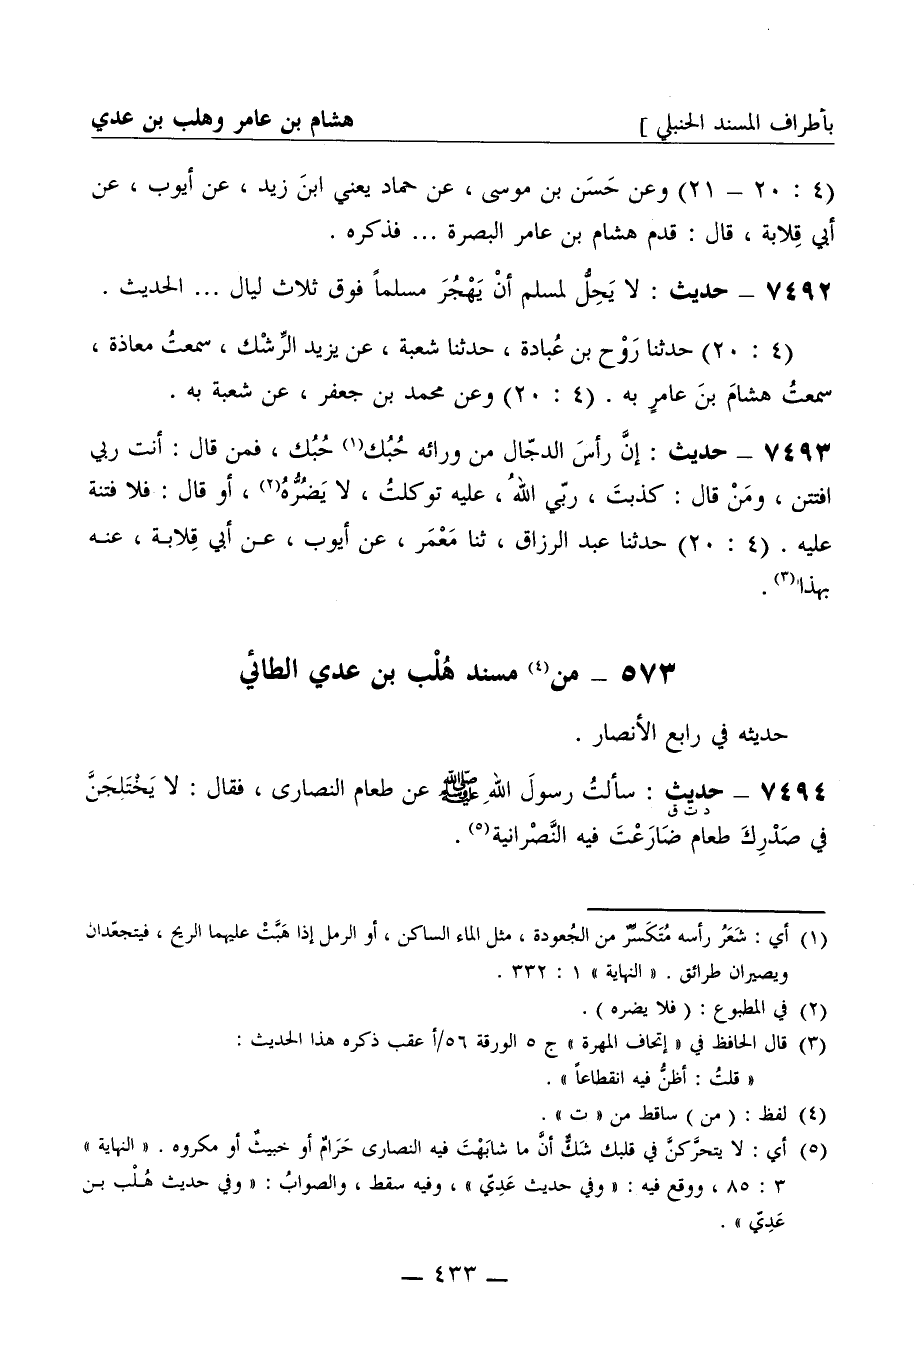 بأطراف المسند الحنبلي ] هشام بن عامر وهلب بن عدي
(٤ : ٢٠ – ٢١) وعن حَسَن بن موسى ، عن حماد يعني ابنَ زيد ، عن أيوب ، عن
أبي قِلابة ، قال : قدم هشام بن عامر البصرة ... فذكره .
٧٤٩٢ – حديث : لا يَحِلُّ لمسلم أنْ يَهْجُرَ مسلماً فوق ثلاث ليال ... الحديث .
(٤ : ٢٠) حدثنا رَوْح بن عُبادة ، حدثنا شعبة ، عن يزيد الرِّشْك ، سمعتُ معاذة ،
سمعتُ هشامَ بنَ عامرٍ به . (٤ : ٢٠) وعن محمد بن جعفر ، عن شعبة به .
٧٤٩٣ – حديث : إنَّ رأسَ الدجّال من ورائه حُبُك(١) حُبُك ، فمن قال : أنت ربي
افتتن ، ومَنْ قال : كذبتَ ، ربّي اللهُ ، عليه توكلتُ ، لا يَضُرُّهُ(٢) ، أو قال : فلا فتنة
عليه . (٤ : ٢٠) حدثنا عبد الرزاق ، ثنا مَعْمَر ، عن أيوب ، عـن أبي قِلابـة ، عنـه
بهذا(٣) .
٥٧٣ – من(٤) مسند هُلْب بن عدي الطائي
حديثه في رابع الأنصار .
٧٤٩٤ – حديث : سألتُ رسولَ اللهِ ﷺ عن طعام النصارى ، فقال : لا يَخْتَلِجَنَّ
د ت ق
في صَدْرِكَ طعام ضَارَعْتَ فيه النَّصْرانية(٥) .
(١) أي : شَعَرُ رأسه مُتَكَسِّرٌ من الجُعودة ، مثل الماء الساكن ، أو الرمل إذا هَبَّتْ عليهما الريح ، فيتجعّدان
ويصيران طرائق . « النهاية » ١ : ٣٣٢ .
(٢) في المطبوع : ( فلا يضره ) .
(٣) قال الحافظ في « إتحاف المهرة » ج ٥ الورقة ٥٦/أ عقب ذكره هذا الحديث :
« قلتُ : أظنُّ فيه انقطاعاً » .
(٤) لفظ : ( من ) ساقط من « ت » .
(٥) أي : لا يتحرَّكنَّ في قلبك شَكٌّ أنَّ ما شابَهْتَ فيه النصارى حَرَامٌ أو خبيثٌ أو مكروه . « النهاية »
٣ : ٨٥ ، ووقع فيه : « وفي حديث عَدِيّ » ، وفيه سقط ، والصوابُ : « وفي حديث هُـلْب بـن
عَدِيّ » .
– ٤٣٣ –